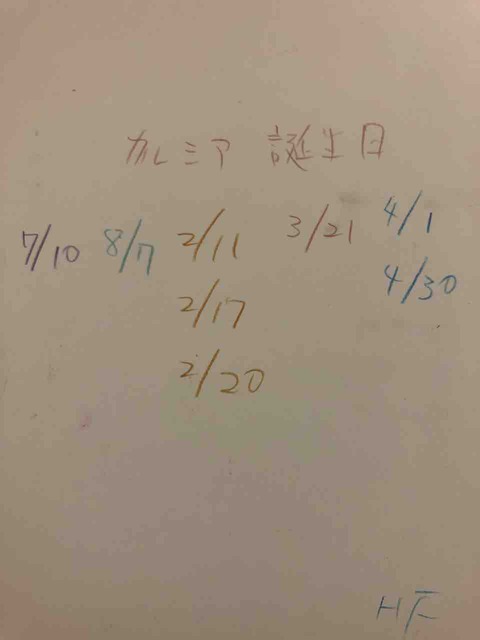 カルミア 誕生日
7/10 8/7 2/11 3/21 4/1
2/17 4/30
2/20
HF